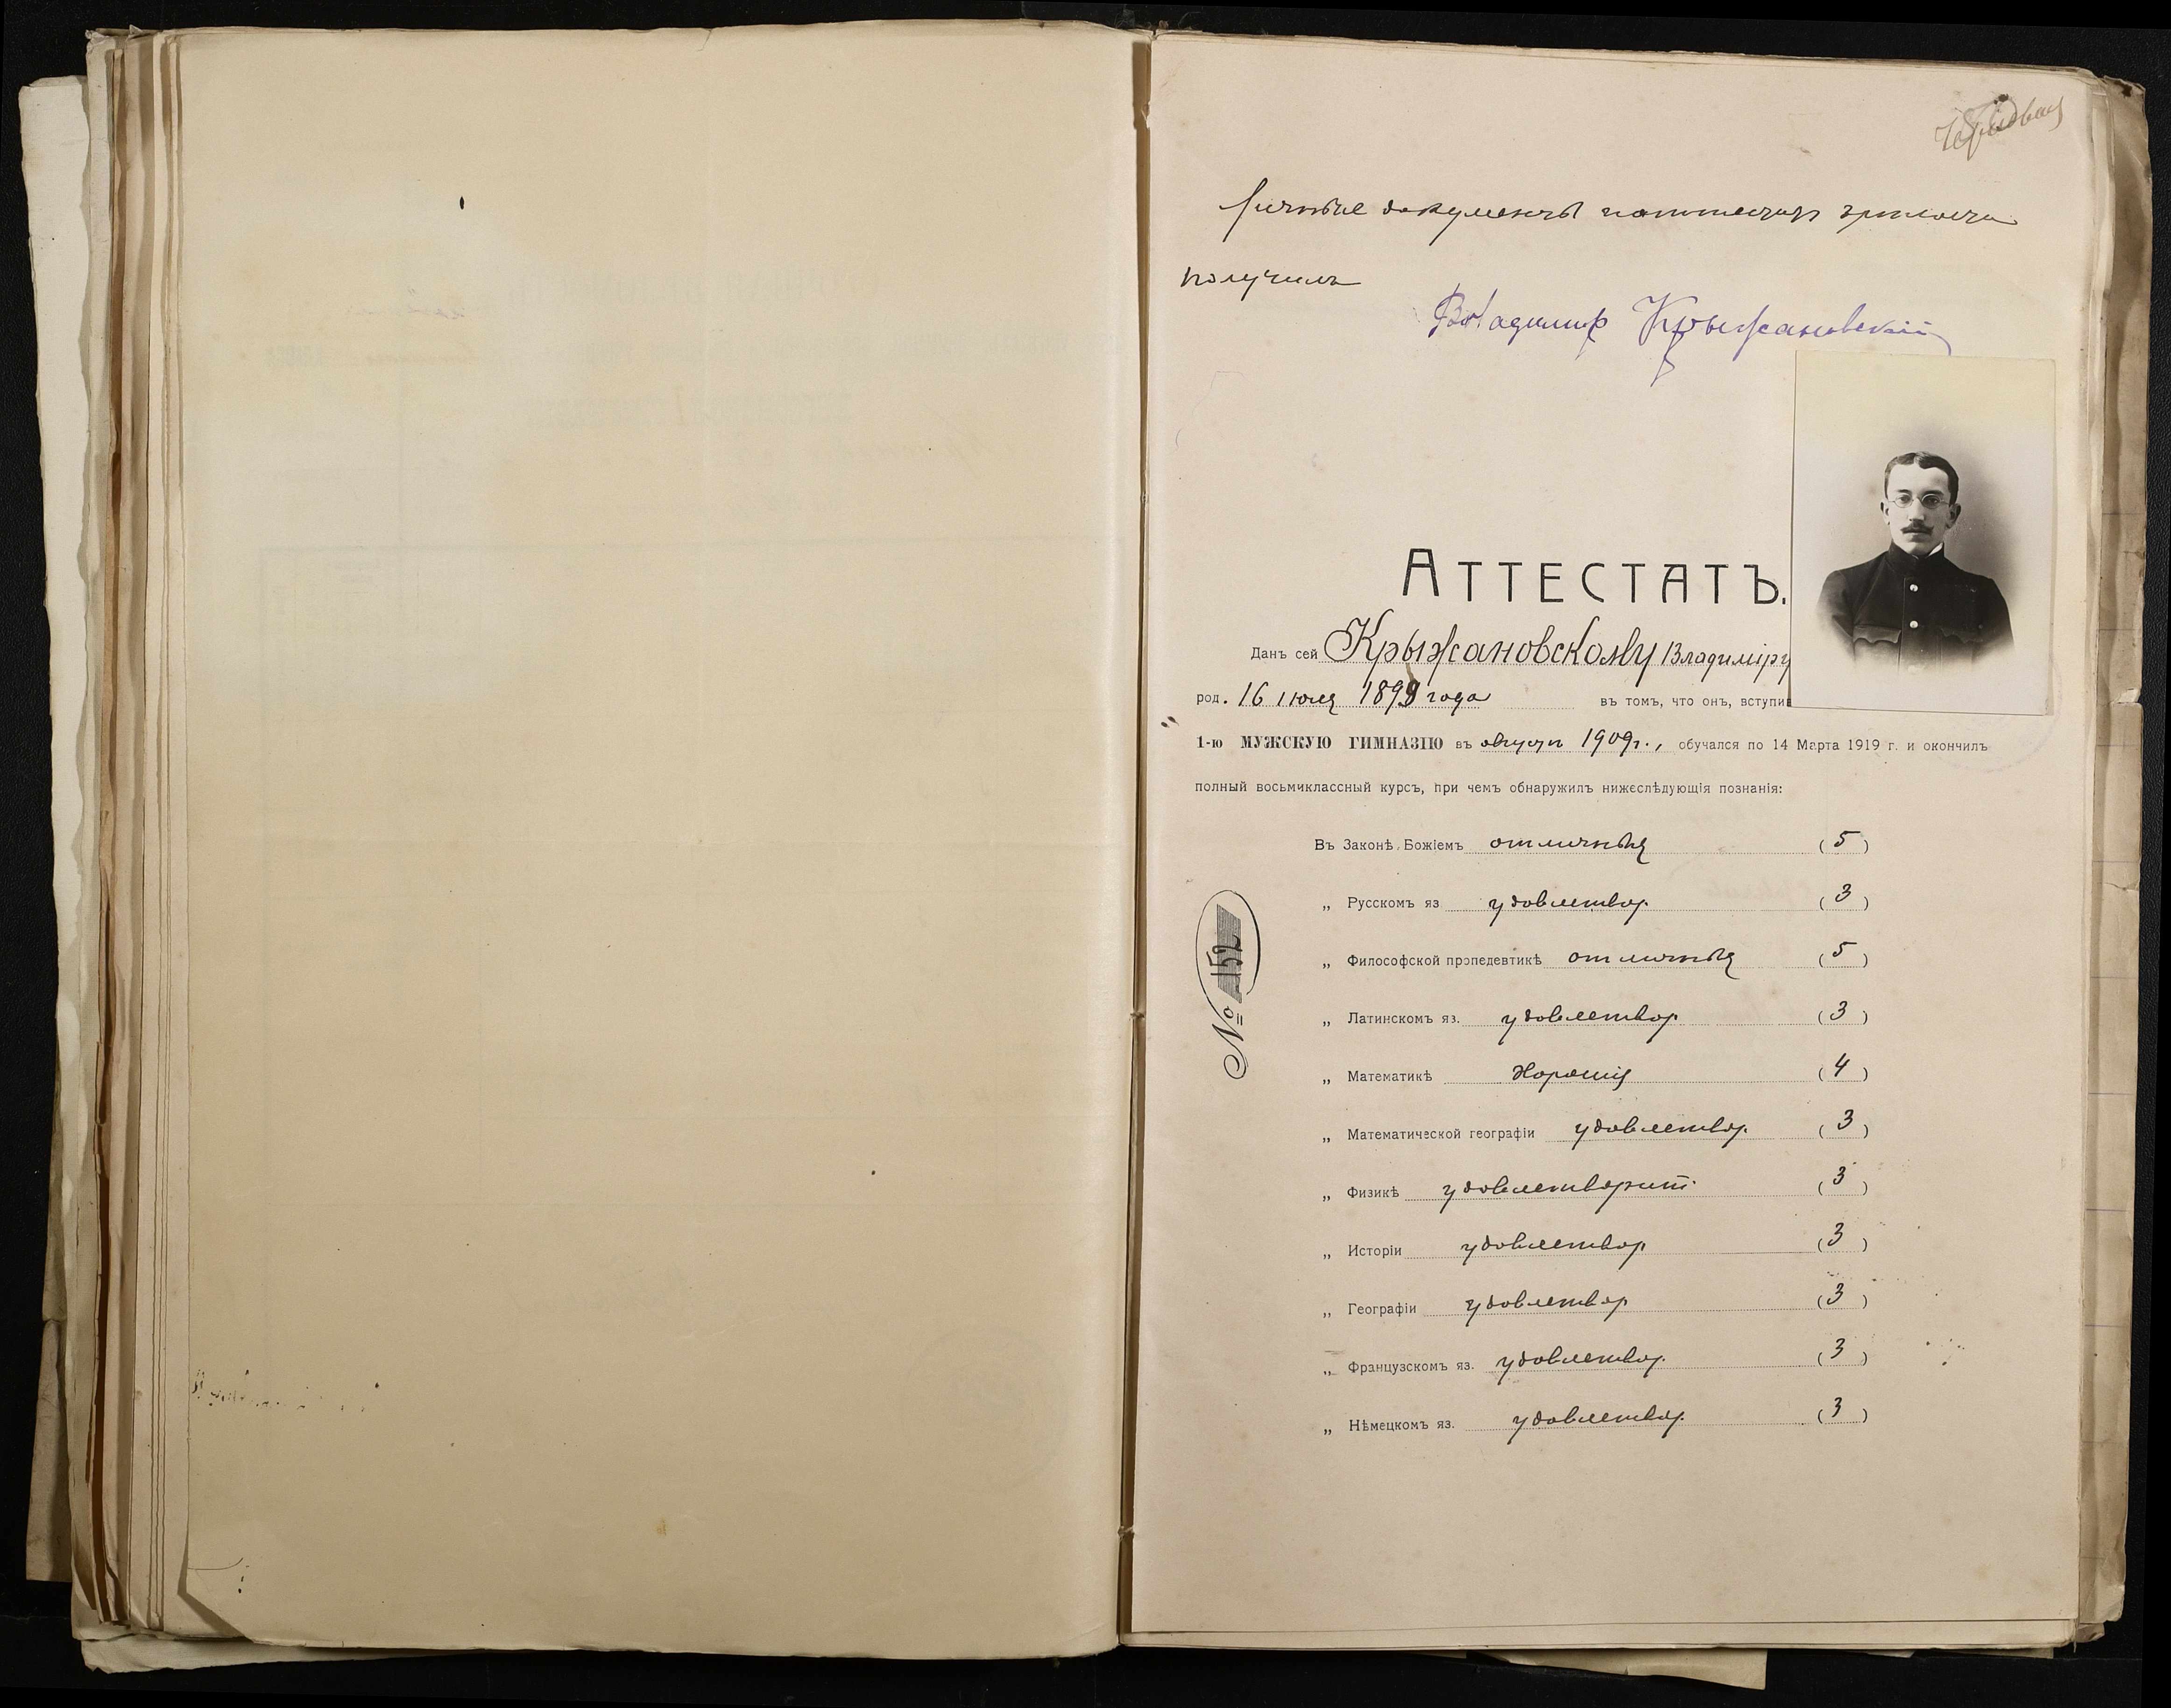 Личные документы
получилъ
Владимир Крыжановскій
Аттестатъ.
Данъ сей Крыжановскому Владиміру
род. 16 іюля 1899 года въ томъ, что онъ, вступив
1-ю МУЖСКУЮ ГИМНАЗІЮ въ августѣ 1909 г., обучался по 14 Марта 1919 г. и окончилъ
полный восьмиклассный курсъ, при чемъ обнаружилъ нижеслѣдующія познанія:
Въ Законѣ Божіемъ отличныя (5)
„ Русскомъ яз удовлетвор. (3)
„ Философской пропедевтикѣ отличныя (5)
„ Латинскомъ яз. удовлетвор (3)
„ Математикѣ хорошія (4)
„ Математической географіи удовлетвор. (3)
„ Физикѣ удовлетворит. (3)
„ Исторіи удовлетвор (3)
„ Географіи удовлетвор (3)
„ Французскомъ яз. удовлетвор. (3)
„ Нѣмецкомъ яз. удовлетвор. (3)
№ 152